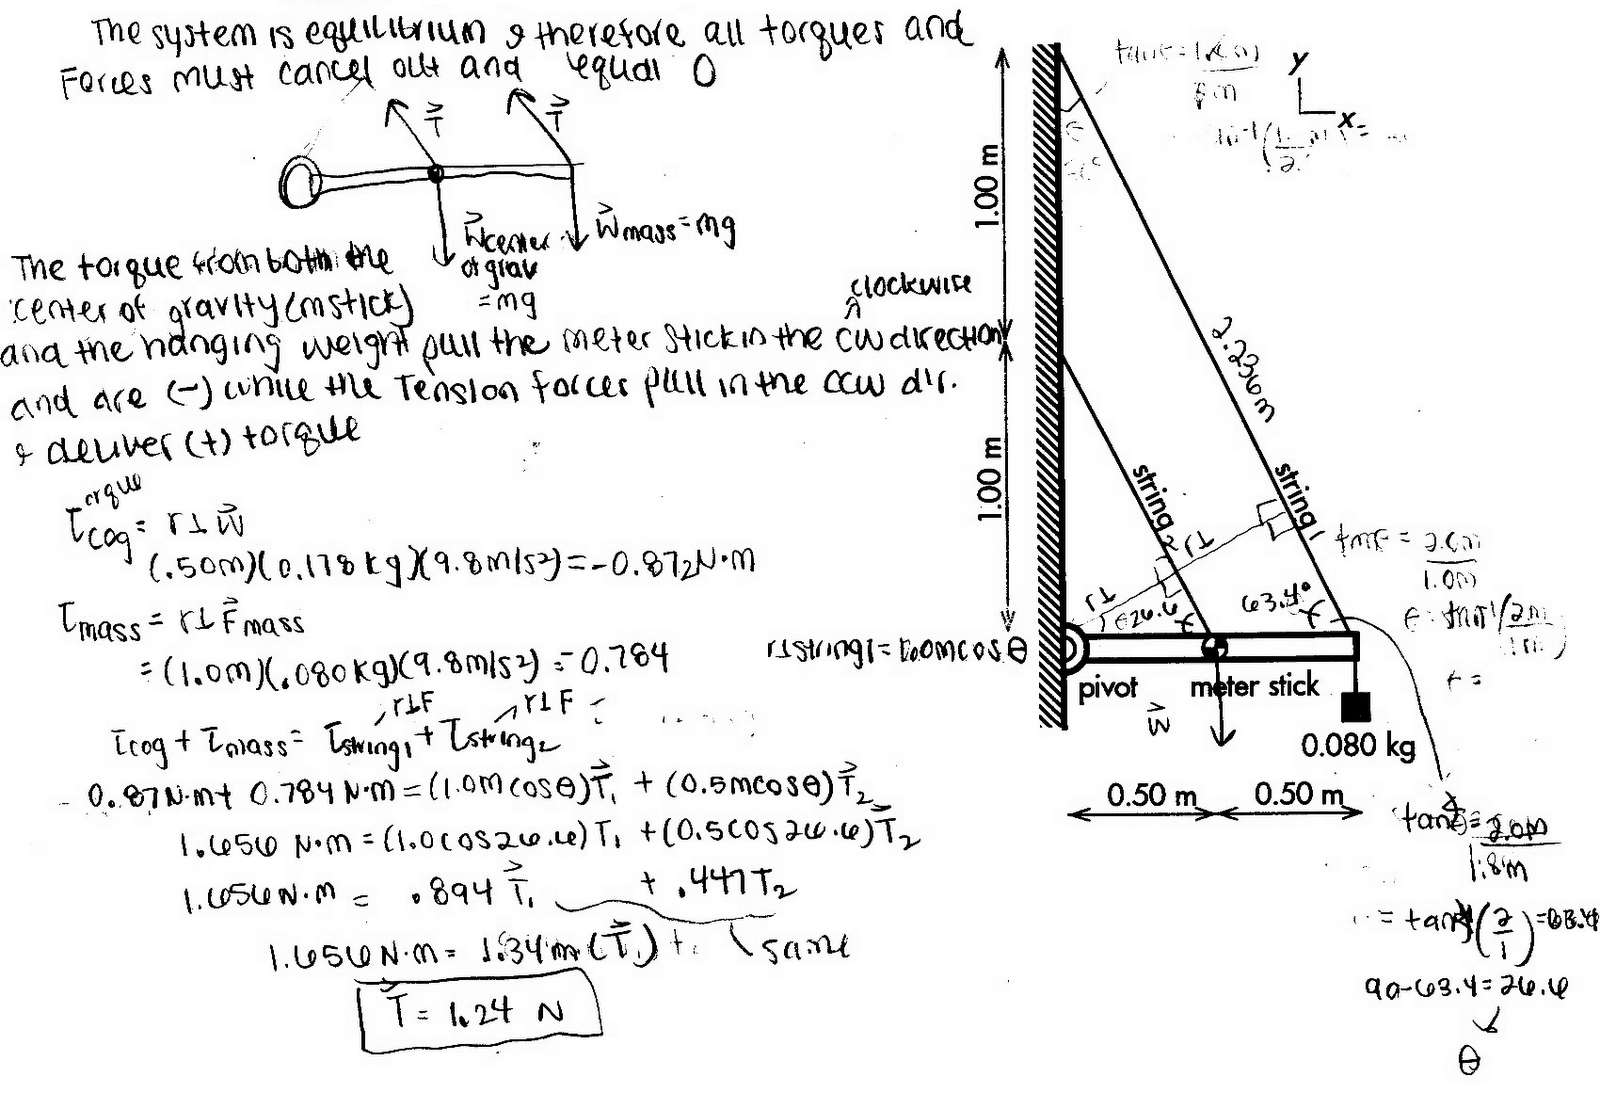 The system is equilibrium & therefore all torques and
Forces must cancel out and equal 0
T
T
W center of grav = mg
W mass = mg
The torque from both the
center of gravity (mstick)
clockwise
and the hanging weight pull the meter stick in the cw direction
and are (-) while the Tension forces pull in the ccw dir.
& deliver (+) torque
orque
τcog = r⊥ W
(.50m)(0.178kg)(9.8m/s2) = -0.872N·m
τmass = r⊥ Fmass
= (1.0m)(.080kg)(9.8m/s2) = -0.784
r⊥F r⊥F
τcog + τmass = τstring1 + τstring2
0.87N·m + 0.784 N·m = (1.0m cosθ)T1 + (0.5m cosθ)T2
1.656 N·m = (1.0cos26.6)T1 + (0.5cos26.6)T2
1.656N·m = .894 T1 + .447T2
1.656N·m = 1.34m(T1) + same
T = 1.24 N
y
x
1.00 m
1.00 m
2.236m
string 1
string 2
r⊥
r⊥
θ26.6
63.4°
r⊥string1 = 1.0m cosθ
pivot
meter stick
W
0.080 kg
0.50 m
0.50 m
= 2.0m
1.0m
= 2.0m
= tan-1(2/1) = 63.4
90-63.4 = 26.6
θ